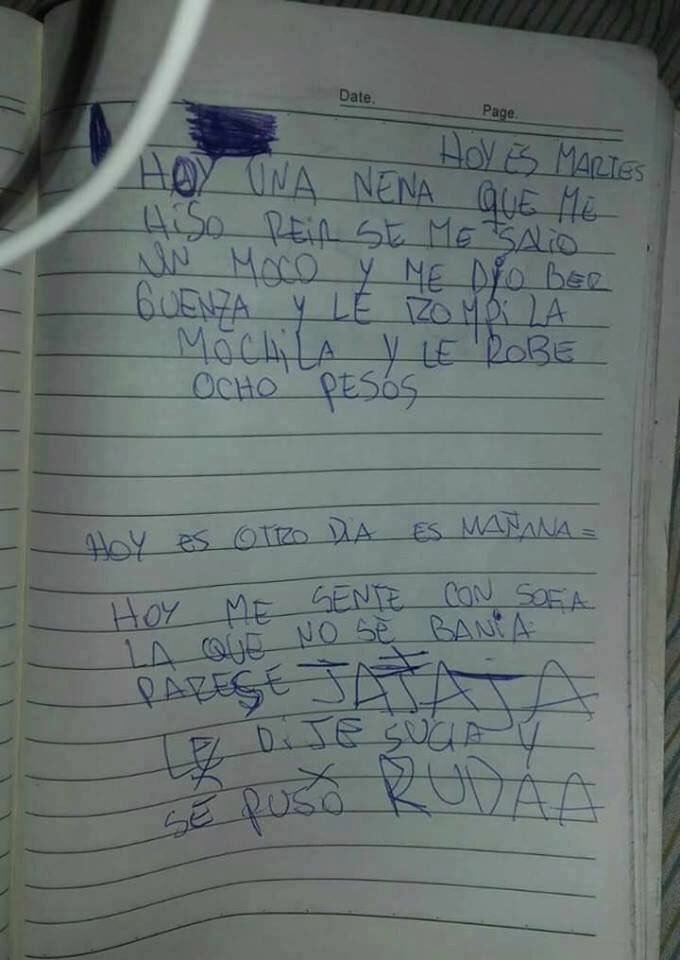 Date.
Page.
HOY ES MARTES
HOY UNA NENA QUE ME
HISO REIR SE ME SALIO
UN MOCO Y ME DIO BER
GUENZA Y LE ROMPI LA
MOCHILA Y LE ROBE
OCHO PESOS
HOY ES OTRO DIA ES MAÑANA=
HOY ME SENTE CON SOFIA
LA QUE NO SE BANIA
PARESE JAJAJA
LE DIJE SUCIA Y
SE PUSO RUDAA